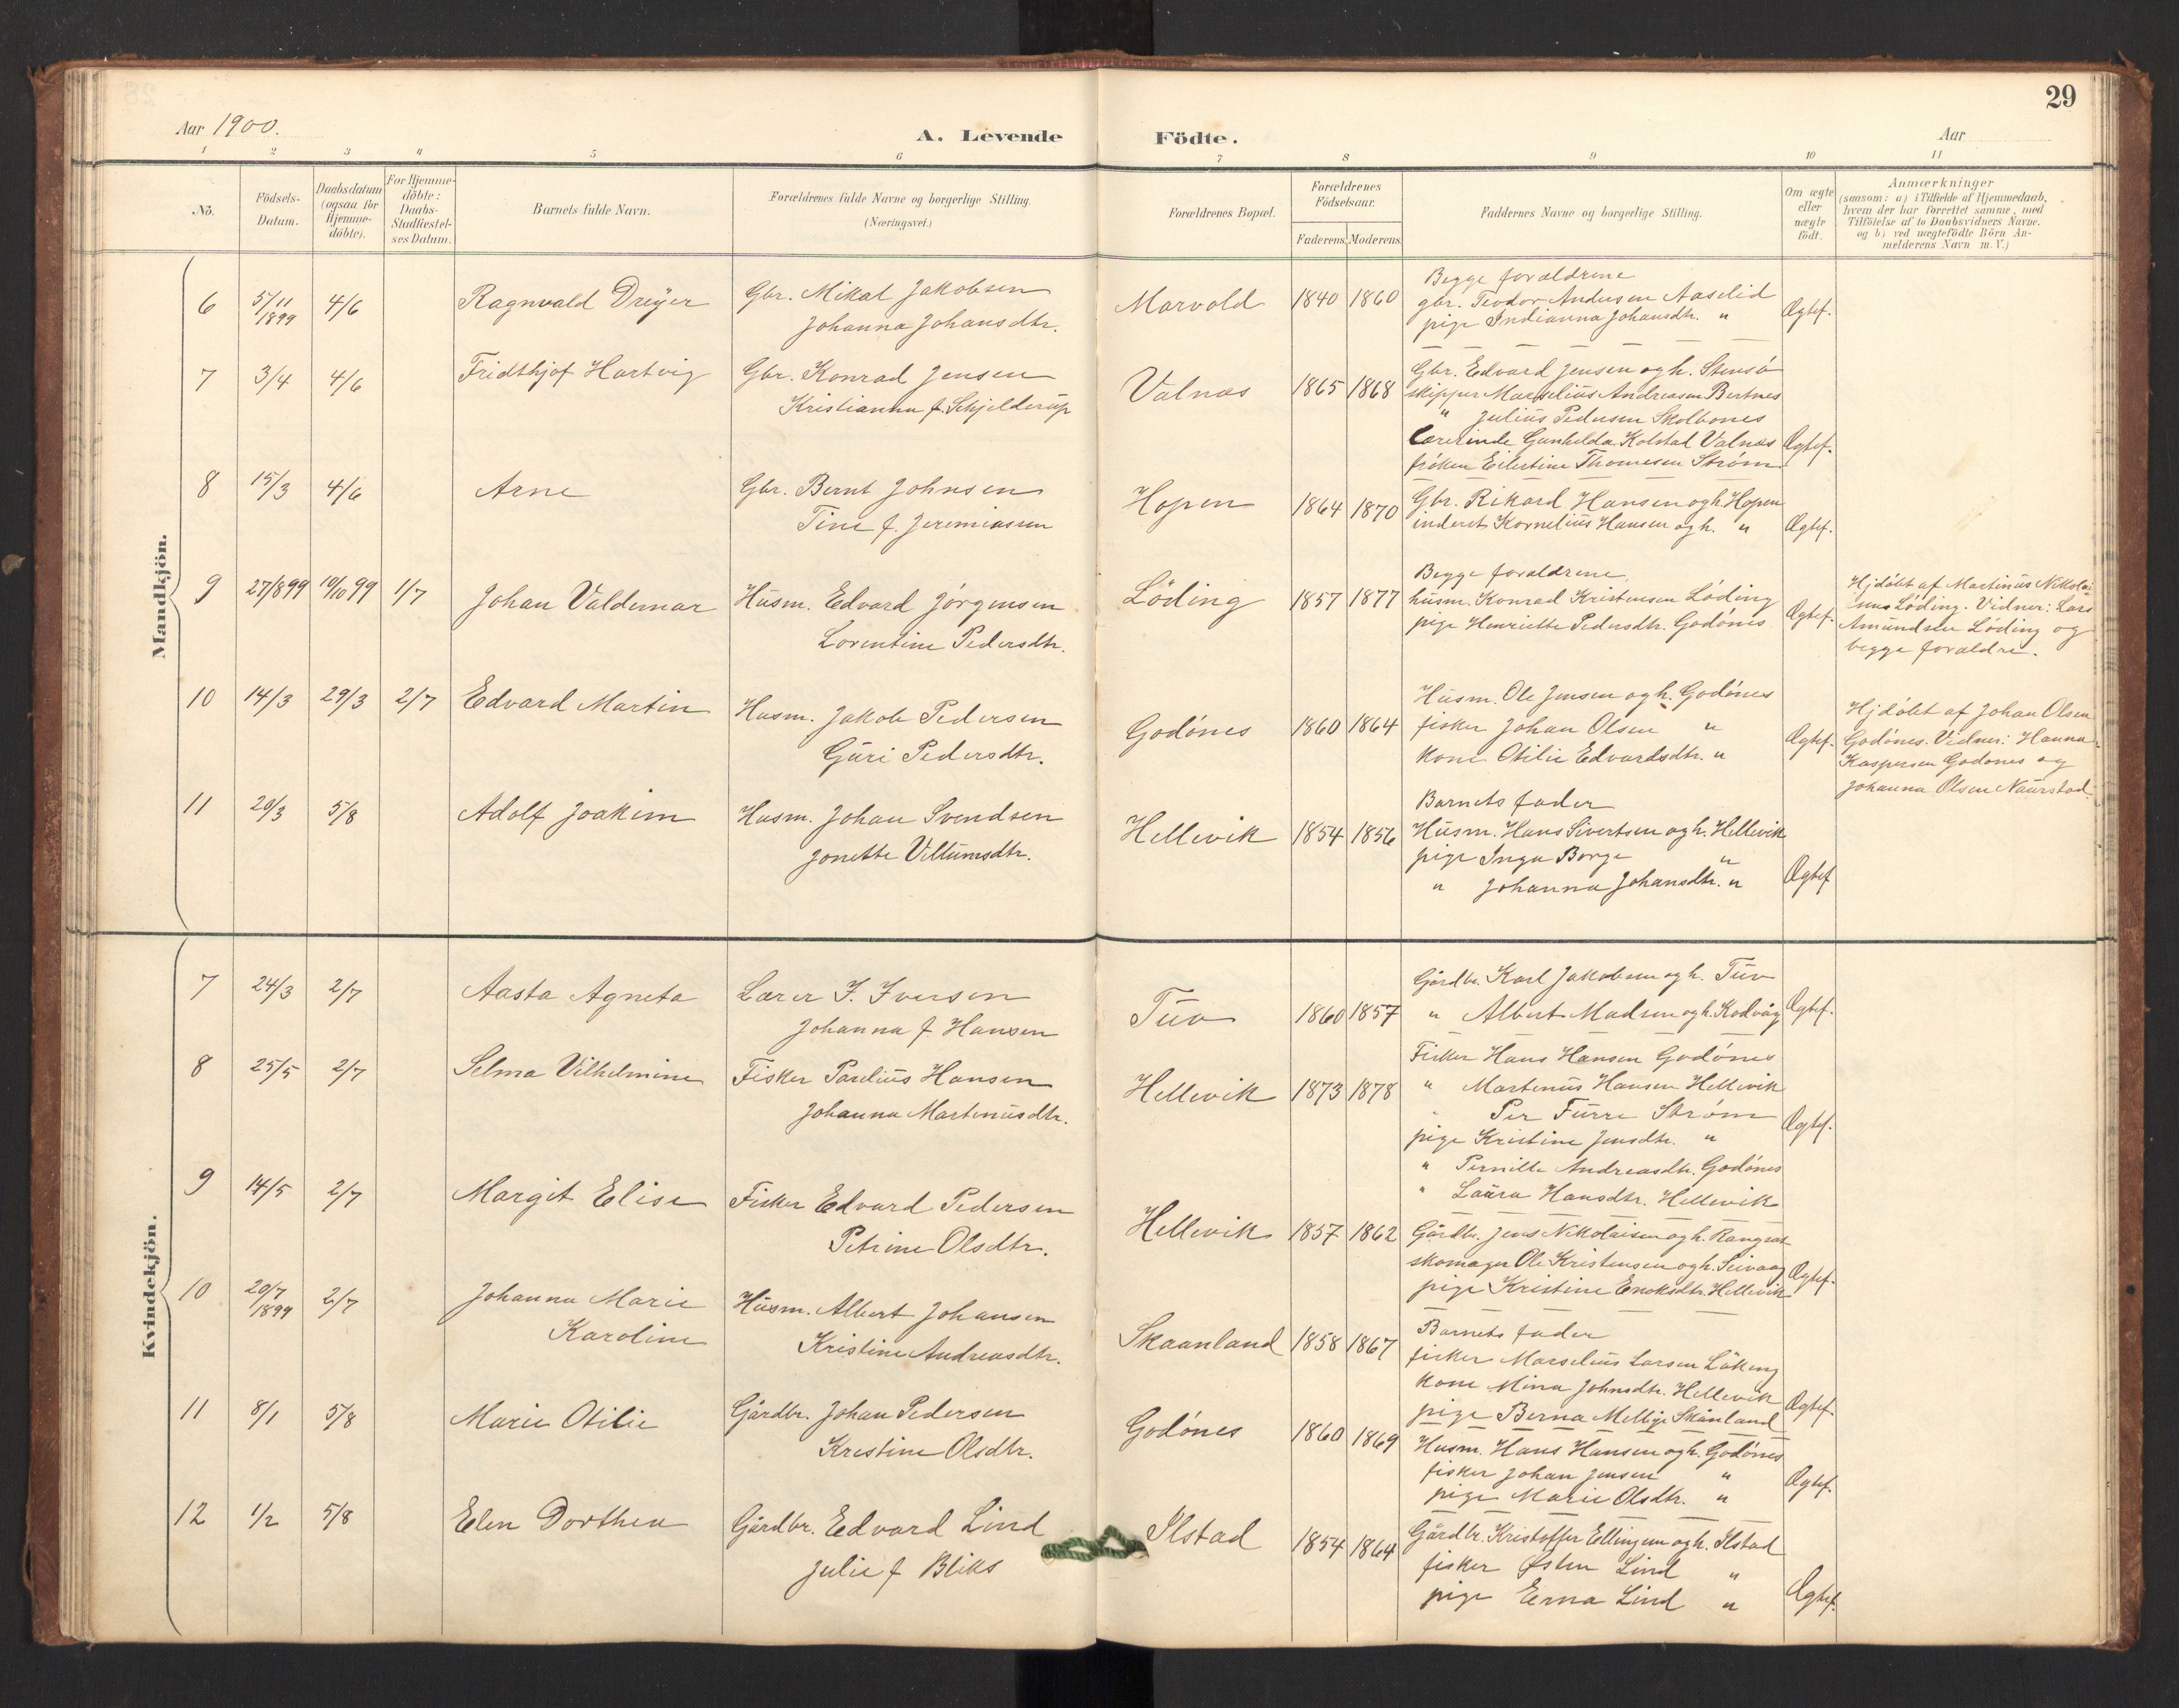 29
Aar 1900.
A. Levende Födte.
Aar
1 2 3 4 5 6 7 8 9 10 11
Nö.
Födsels-
Datum.
Daabsdatum
(ogsaa for
Hjemme-
döbte).
For Hjemme-
döbte:
Daabs-
Stadfæstel-
ses Datum.
Barnets fulde Navn.
Forældrenes fulde Navne og borgerlige Stilling.
(Næringsvei.)
Forældrenes Bopæl.
Forældrenes
Födselsaar.
Faderens. Moderens.
Faddernes Navne og borgerlige Stilling.
Om ægte
eller
uægte
födt.
Anmærkninger
(saasom: a) i Tilfælde af Hjemmedaab,
hvem der har forrettet samme, med
Tilföielse af to Daabsvidners Navne.
og b) ved uægtefödte Börn An-
melderens Navn m. V.)
Mandkjön.
6 5/11 1899 4/6 Ragnvald Dreyer
Gbr. Mikal Jakobsen
Johanna Johansdtr.
Marvold 1840 1860
Begge forældrene
gbr. Teodor Andersen Aaselid
pige Indianna Johansdtr. "
Ægtef.
7 3/4 4/6 Fridthjof Hartvig
Gbr. Konrad Jensen
Kristianna f. Schjelderup
Valnæs 1865 1868
Gbr. Edvard Jensen og h. Stensö
skipper Marselius Andreasen Bertnes
" Julius Pedersen Skolbones
Lærerinde Gunhelda Kolstal Valnæs
fröken Eilertine Thomesen Ström
Ægtef.
8 15/3 4/6 Arne
Gbr. Bernt Johnsen
Tine f. Jeremiassen
Hopen 1864 1870
Gbr. Rikard Hansen og h. Hopen
inderst Kornelius Hansen og h. "
Ægtef.
9 27/8 99 10/10 99 1/7 Johan Valdemar
Husm. Edvard Jörgensen
Lorentine Pedersdtr.
Löding 1857 1877
Begge forældrene
husm. Konrad Kristensen Löding
pige Henriette Pedersdtr. Godönes
Ægtef.
Hjdöbt af Martinus Nikolai
Löding. Vidner: Lars
Amundsen Löding og
begge forældre.
10 14/3 29/3 2/7 Edvard Martin
Husm. Jakob Pedersen
Guri Pedersdtr.
Godönes 1860 1864
Husm. Ole Jensen og h. Godönes
fisker Johan Olsen "
kone Otilie Edvardsdtr. "
Ægtef.
Hjdöbt af Johan Olsen
Godönes. Vidner: Hanna
Kaspersen Godönes og
Johanna Olsen Naurstad.
11 20/3 5/8 Adolf Joakim
Husm. Johan Svendsen
Jonette Villumsdtr.
Hellevik 1854 1856
Barnets fader
Husm. Hans Sivertsen og h. Hellevik
pige Inga Borge "
" Johanna Johansdtr. "
Ægtef
Kvindekjön.
7 24/3 2/7 Aasta Agneta
Lærer I. Iversen
Johanna f. Hansen
Tuv 1860 1857
Gårdbr. Karl Jakobsen og h. Tuv
" Albert Madsen og h. Kodvåg
Ægtef.
8 25/5 2/7 Selma Vilhelmine
Fisker Paulius Hansen
Johanna Martinusdtr.
Hellevik 1873 1878
Fisker Hans Hansen Godönes
" Martinus Hansen Hellevik
" Per Furre Ström
pige Kristine Jensdtr. "
" Pernille Andreasdtr. Godönes
" Laura Hansdtr. Hellevik
Ægtef.
9 14/5 2/7 Margit Elise
Fisker Edvard Pedersen
Petrine Olsdtr.
Hellevik 1857 1862
Gårdbr. Jens Nikolaisen og h.
skomager Ole Kristensen og h. Seivaag
pige Kristine Enoksdtr. Hellevik
Ægtef.
10 20/7 1899 2/7 Johanna Marie
Karoline
Husm. Albert Johansen
Kristine Andreasdtr.
Skaanland 1858 1867
Barnets fader
fisker Marselius Larsen Löking
kone Mina Johnsdtr. Hellevik
pige Berna Mellige Skånland
Ægtef.
11 8/1 5/8 Marie Otilie
Gårdbr. Johan Pedersen
Kristine Olsdtr.
Godönes 1860 1869
Husm. Hans Hansen og h. Godönes
fisker Johan Jensen "
pige Marie Olsdtr. "
Ægtef.
12 1/2 5/8 Elen Dorthea
Gårdbr. Edvard Lind
Julie f Bliks
Ilstad 1854 1864
Gårdbr. Kristoffer Ellingsen og h. Ilstad
fisker Østen Lind "
pige Erna Lind "
Ægtef.